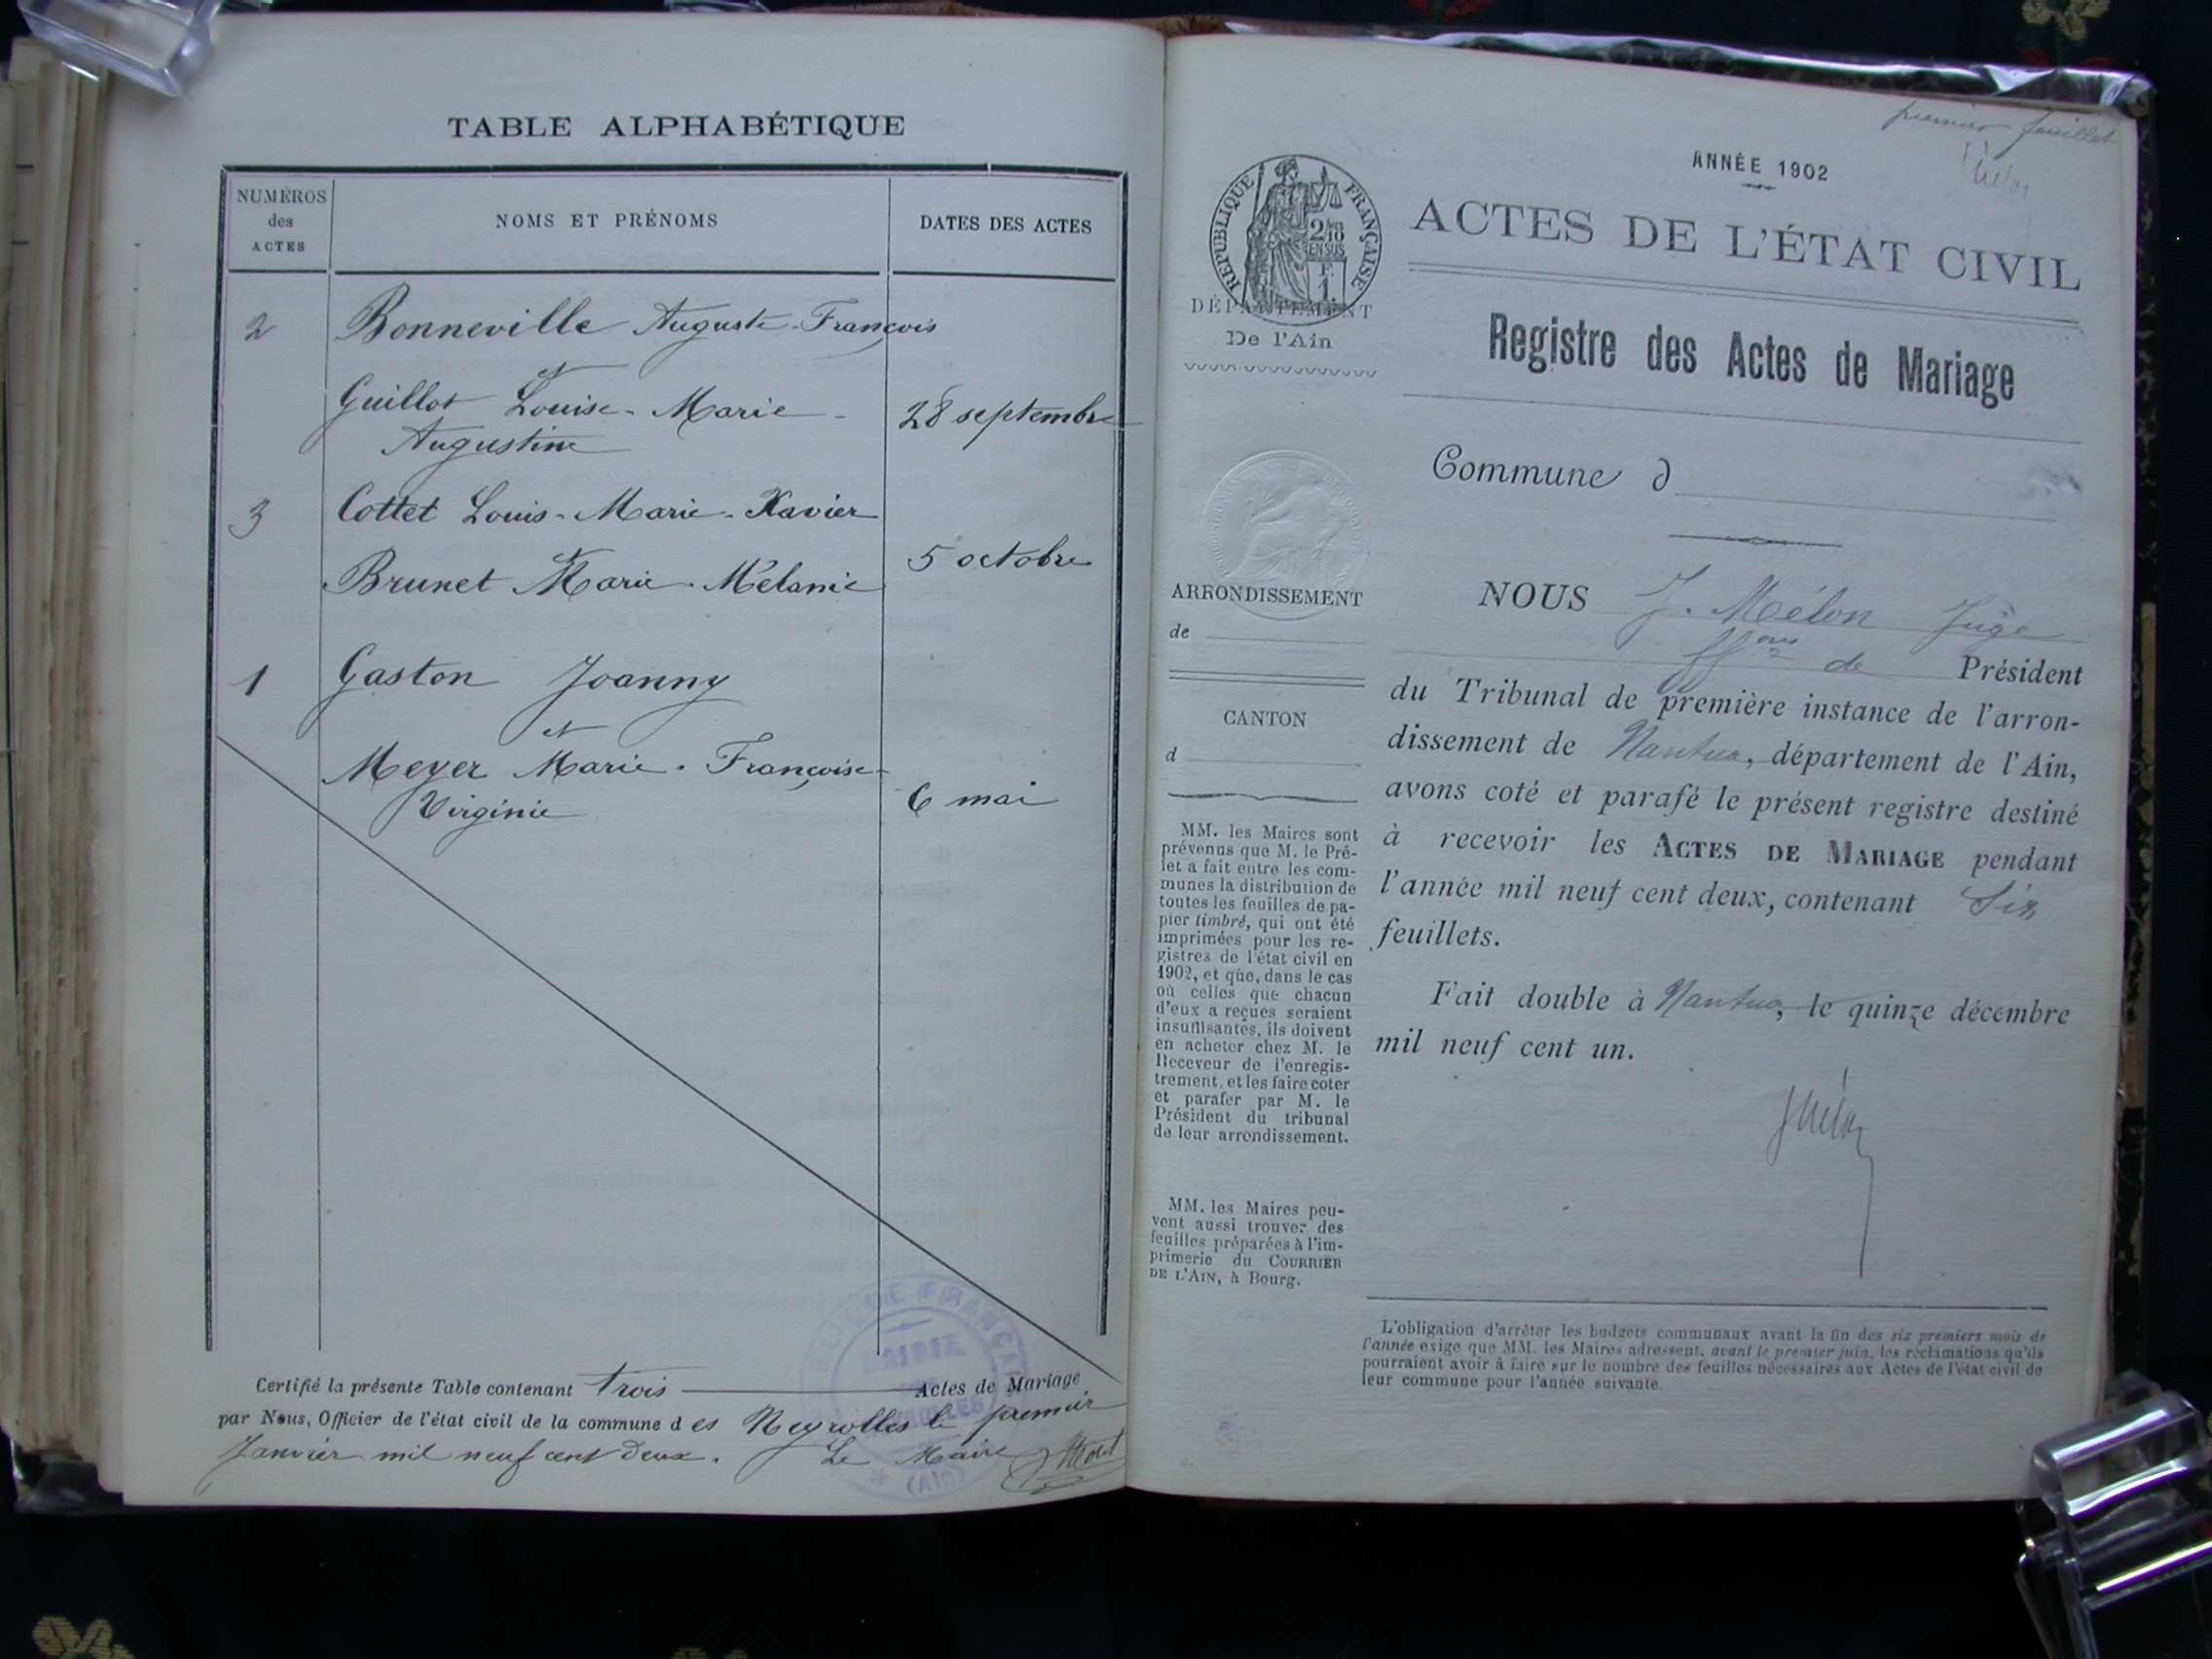 TABLE ALPHABÉTIQUE
NUMÉROS
des
ACTES
NOMS ET PRÉNOMS
DATES DES ACTES
2 Bonneville Auguste-François
et
Guillot Louise-Marie-
Augustine
28 septembre
3 Cottet Louis-Marie-Xavier
et
Brunet Marie-Mélanie
5 octobre
1 Gaston Joanny
et
Meyer Marie-Françoise-
Virginie
6 mai
Certifié la présente Table contenant trois Actes de Mariage
par Nous, Officier de l'état civil de la commune des Neyrolles le premier
Janvier mil neuf cent deux. Le Maire
MAIRIE
(AIN)
premier feuillet
ANNÉE 1902
RÉPUBLIQUE FRANÇAISE
ACTES DE L'ÉTAT CIVIL
DÉPARTEMENT
De l'Ain
Registre des Actes de Mariage
Commune d
ARRONDISSEMENT
de
CANTON
d
NOUS J. Mélon Juge
de Président
du Tribunal de première instance de l'arron-
dissement de Nantua, département de l'Ain,
avons coté et parafé le présent registre destiné
à recevoir les ACTES DE MARIAGE pendant
l'année mil neuf cent deux, contenant Six
feuillets.
Fait double à Nantua, le quinze décembre
mil neuf cent un.
MM. les Maires sont
prévenus que M. le Pré-
fet a fait entre les com-
munes la distribution de
toutes les feuilles de pa-
pier timbré, qui ont été
imprimées pour les re-
gistres de l'état civil en
1902, et que, dans le cas
où celles que chacun
d'eux a reçues seraient
insuffisantes, ils doivent
en acheter chez M. le
Receveur de l'enregis-
trement, et les faire coter
et parafer par M. le
Président du tribunal
de leur arrondissement.
MM. les Maires peu-
vent aussi trouver des
feuilles préparées à l'im-
primerie du COURRIER
DE L'AIN, à Bourg.
L'obligation d'arrêter les budgets communaux avant la fin des six premiers mois de
l'année exige que MM. les Maires adressent, avant le premier juin, les réclamations qu'ils
pourraient avoir à faire sur le nombre des feuilles nécessaires aux Actes de l'état civil de
leur commune pour l'année suivante.